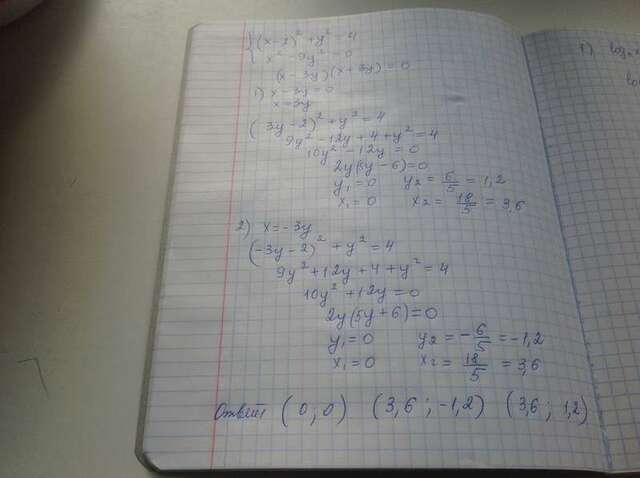 (x-2)² + y² = 4
x² - 9y² = 0
(x-3y)(x+3y) = 0
1) x-3y=0
x=3y
(3y-2)² + y² = 4
9y² - 12y + 4 + y² = 4
10y² - 12y = 0
2y(5y-6)=0
y₁=0 y₂ = 6/5 = 1,2
x₁=0 x₂ = 18/5 = 3,6
2) x=-3y
(-3y-2)² + y² = 4
9y² + 12y + 4 + y² = 4
10y² + 12y = 0
2y(5y+6)=0
y₁=0 y₂ = -6/5 = -1,2
x₁=0 x₂ = 18/5 = 3,6
Ответ (0;0) (3,6 ; -1,2) (3,6 ; 1,2)
1)